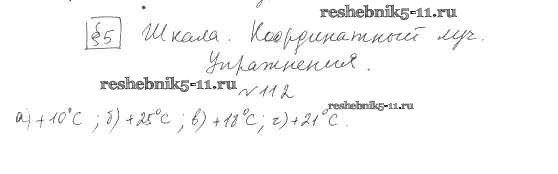 reshebnik5-11.ru
§5 Шкала. Координатный луч.
Упражнения.
reshebnik5-11.ru
№112
reshebnik5-11.ru
а) +10°C ; б) +25°C ; в) +18°C ; г) +21°C.